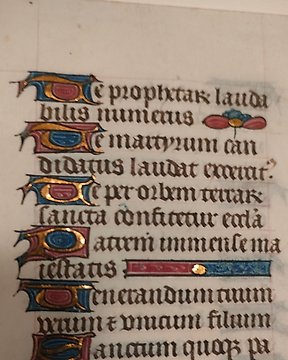 Te prophetar lauda
bilis numerus
Te martyrum can
didatus laudat exercit⁹
Te per orbem terrar
sancta confitetur eccl̃a
Patrem immense ma
iestatis
Uenerandum tuum
verum ⁊ vnicum filium
Sanctum quoqꝫ pa